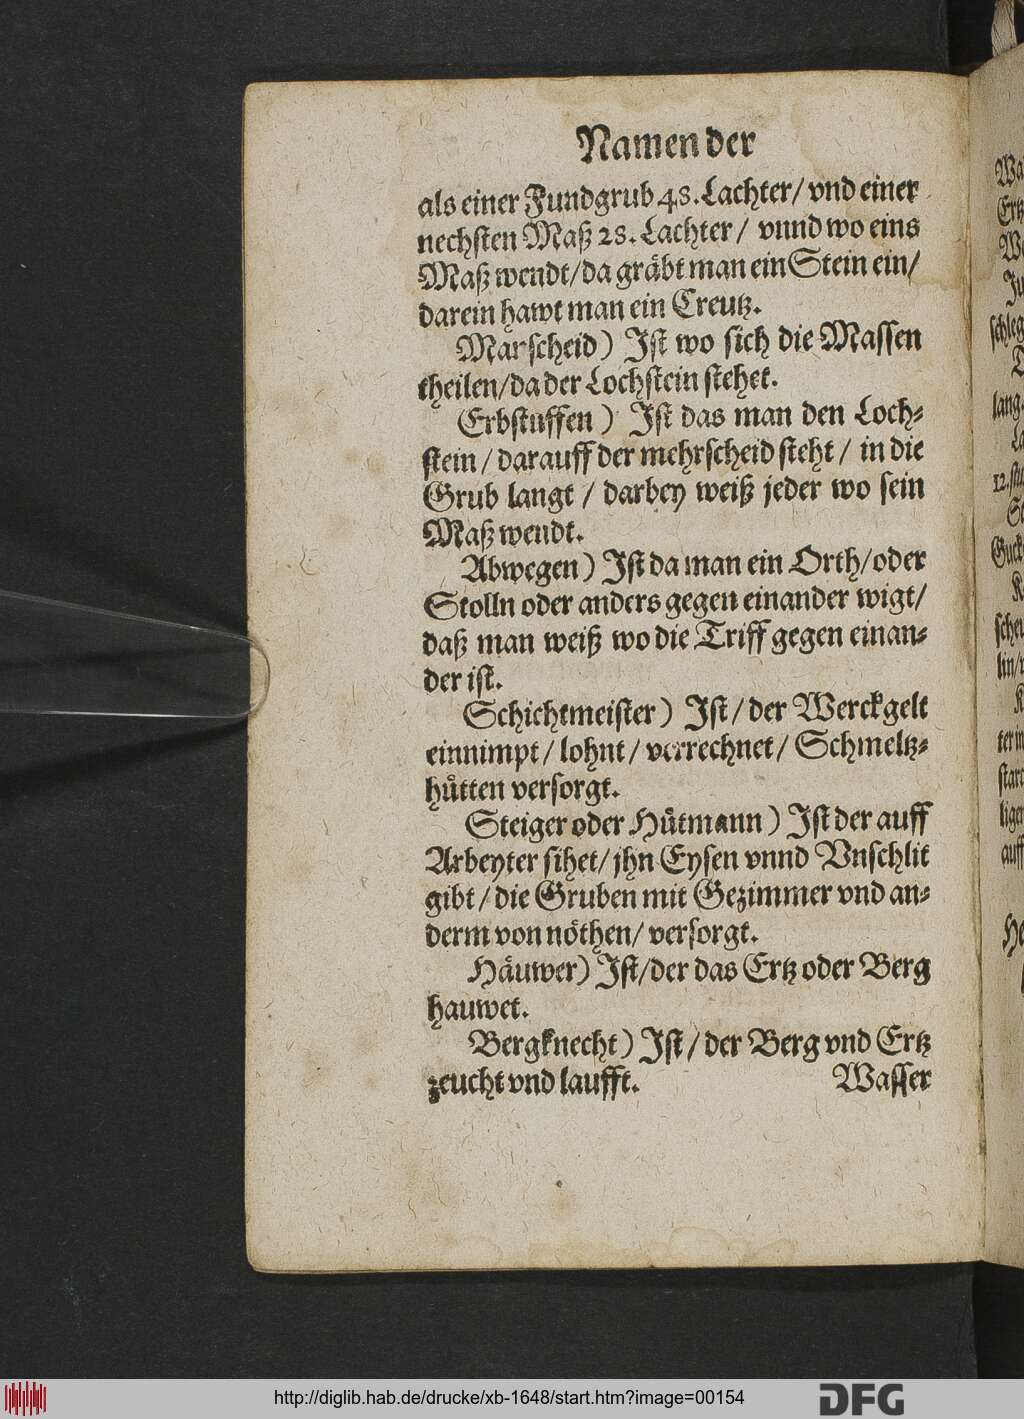 Namen der
als einer Fundgrub 43. Lachter/ vnd einer
nechsten Maß 28. Lachter/ vnnd wo eins
Maß wendt/ da gräbt man ein Stein ein/
darein hawt man ein Creutz.
Marscheid) Ist wo sich die Massen
theilen/ da der Lochstein stehet.
Erbstuffen) Ist das man den Loch-
stein/ darauff der mehrscheid steht/ in die
Grub langt/ darbey weiß jeder wo sein
Maß wendt.
Abwegen) Ist da man ein Orth/ oder
Stolln oder anders gegen einander wigt/
daß man weiß wo die Triff gegen einan-
der ist.
Schichtmeister) Ist/ der Werckgelt
einnimpt/ lohnt/ verrechnet/ Schmeltz-
hütten versorgt.
Steiger oder Hütmann) Ist der auff
Arbeyter sihet/ jhn Eysen vnnd Vnschlit
gibt/ die Gruben mit Gezimmer vnd an-
derm von nöthen/ versorgt.
Häuwer) Ist/ der das Ertz oder Berg
hauwet.
Bergknecht) Ist/ der Berg vnd Ertz
zeucht vnd laufft.
Wasser
http://diglib.hab.de/drucke/xb-1648/start.htm?image=00154
DFG